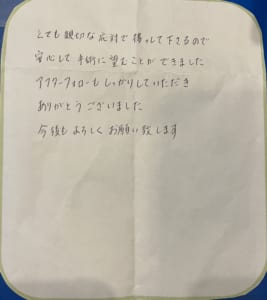 とても親切な応対で接して下さるので
安心して手術に望むことができました
アフターフォローもしっかりしていただき
ありがとうございました
今後もよろしくお願い致します